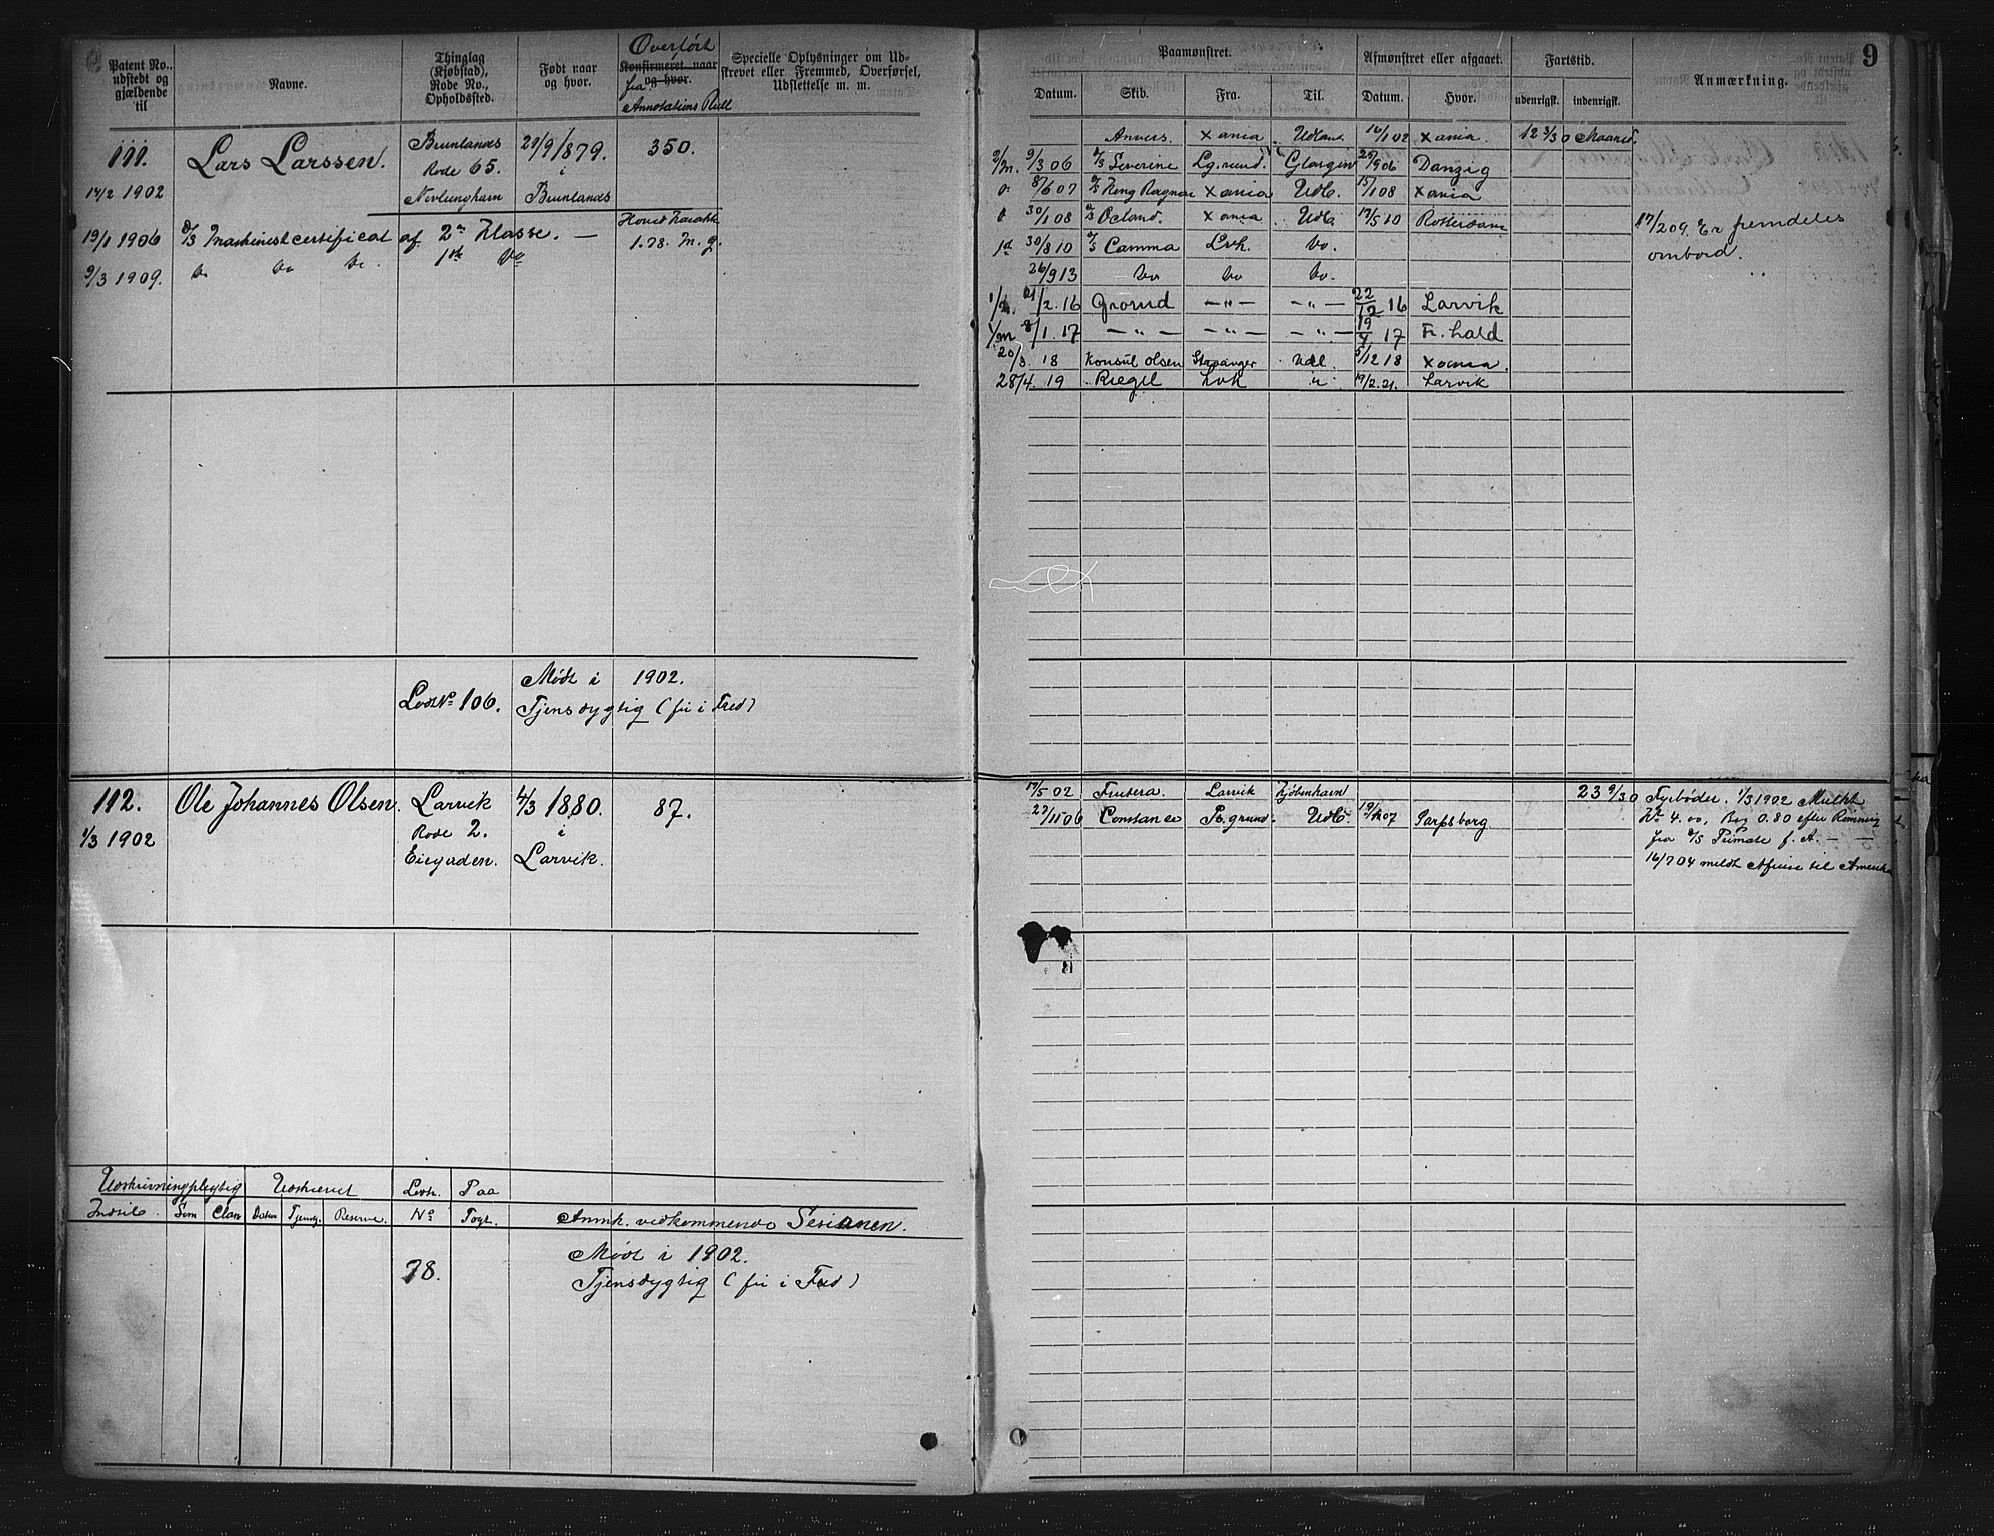 Patent No., udstedt og gjældende til
Navne.
Thinglag (Kjøbstad), Rode No., Opholdssted.
Født naar og hvor.
Overført
Konfirmeret naar og hvor.
fra
Annotations Rull
Specielle Oplysninger om Udskrevet eller Fremmed, Overførsel, Udslettelse m. m.
Paamønstret.
Afmønstret eller afgaaet.
Fartstid.
Anmærkning.
9
Datum. Skib. Fra. Til. Datum. Hvor. udenrigsk. indenrigsk.
111. Lars Larssen. Brunlanæs 350.
Rode 65. i
14/2 1902 Nevlunghavn Brunlanæs
19/1 1906 D/S Maskinistcertificat af 2en Klasse. — 1.78. M. g.
9/3 1909. do do do. 1ste do
Anvers Xania Udland 16/1 02 Xania. 12 3/30 Maaned
9/3 06 D/S Severine Lg.sund. Glasgow 06 Danzig
8/6 07 D/S Kong Ragnar Xania Udl. 15/1 08 Xania
30/1 08 D/S Xania Udl. 17/5 10 Rotterdam
17/2 09. Er fremdeles
ombord.
30/8 10 D/S Camma Lvk. do.
26/9 13 do do do.
/2. 16 Grorud — " — — " — 22/12 16 Larvik
8/1. 17 — " — — " — — " — 17 Fr. hald
20/3. 18 Konsul Olsen Stavanger Udl. 12 18 Xania.
28/4. 19 Riegel Lvk " 19/2. 21. Larvik
Lodd No 106.
Mødt i 1902.
Tjensdygtig (fri i Fred)
112. Ole Johannes Olsen. Larvik 4/3 1880. 87.
Rode 2. i
1/3 1902
Larvik.
17/5 02 Frutera. Larvik Kjøbenhavn 23 9/30
27/11 06 Constance P.grund. Udl. 07 Sarpsborg
Fyrbøder. 1/3 1902 Mulkt
Kr 4.00, Bog 0.80 efter Rømning
fra D/S Primate f. A. — —
16/7 04 meldt Afreise til Amerika
Udskrivningspligtig Udskrevet Lodtr. Paa
Indrul. Sum Clas Datum Tjeneste. Reserve. No Togt. Anmk. vedkommende Sesionen.
78.
Mødt i 1902.
Tjensdygtig (fri i Fred)